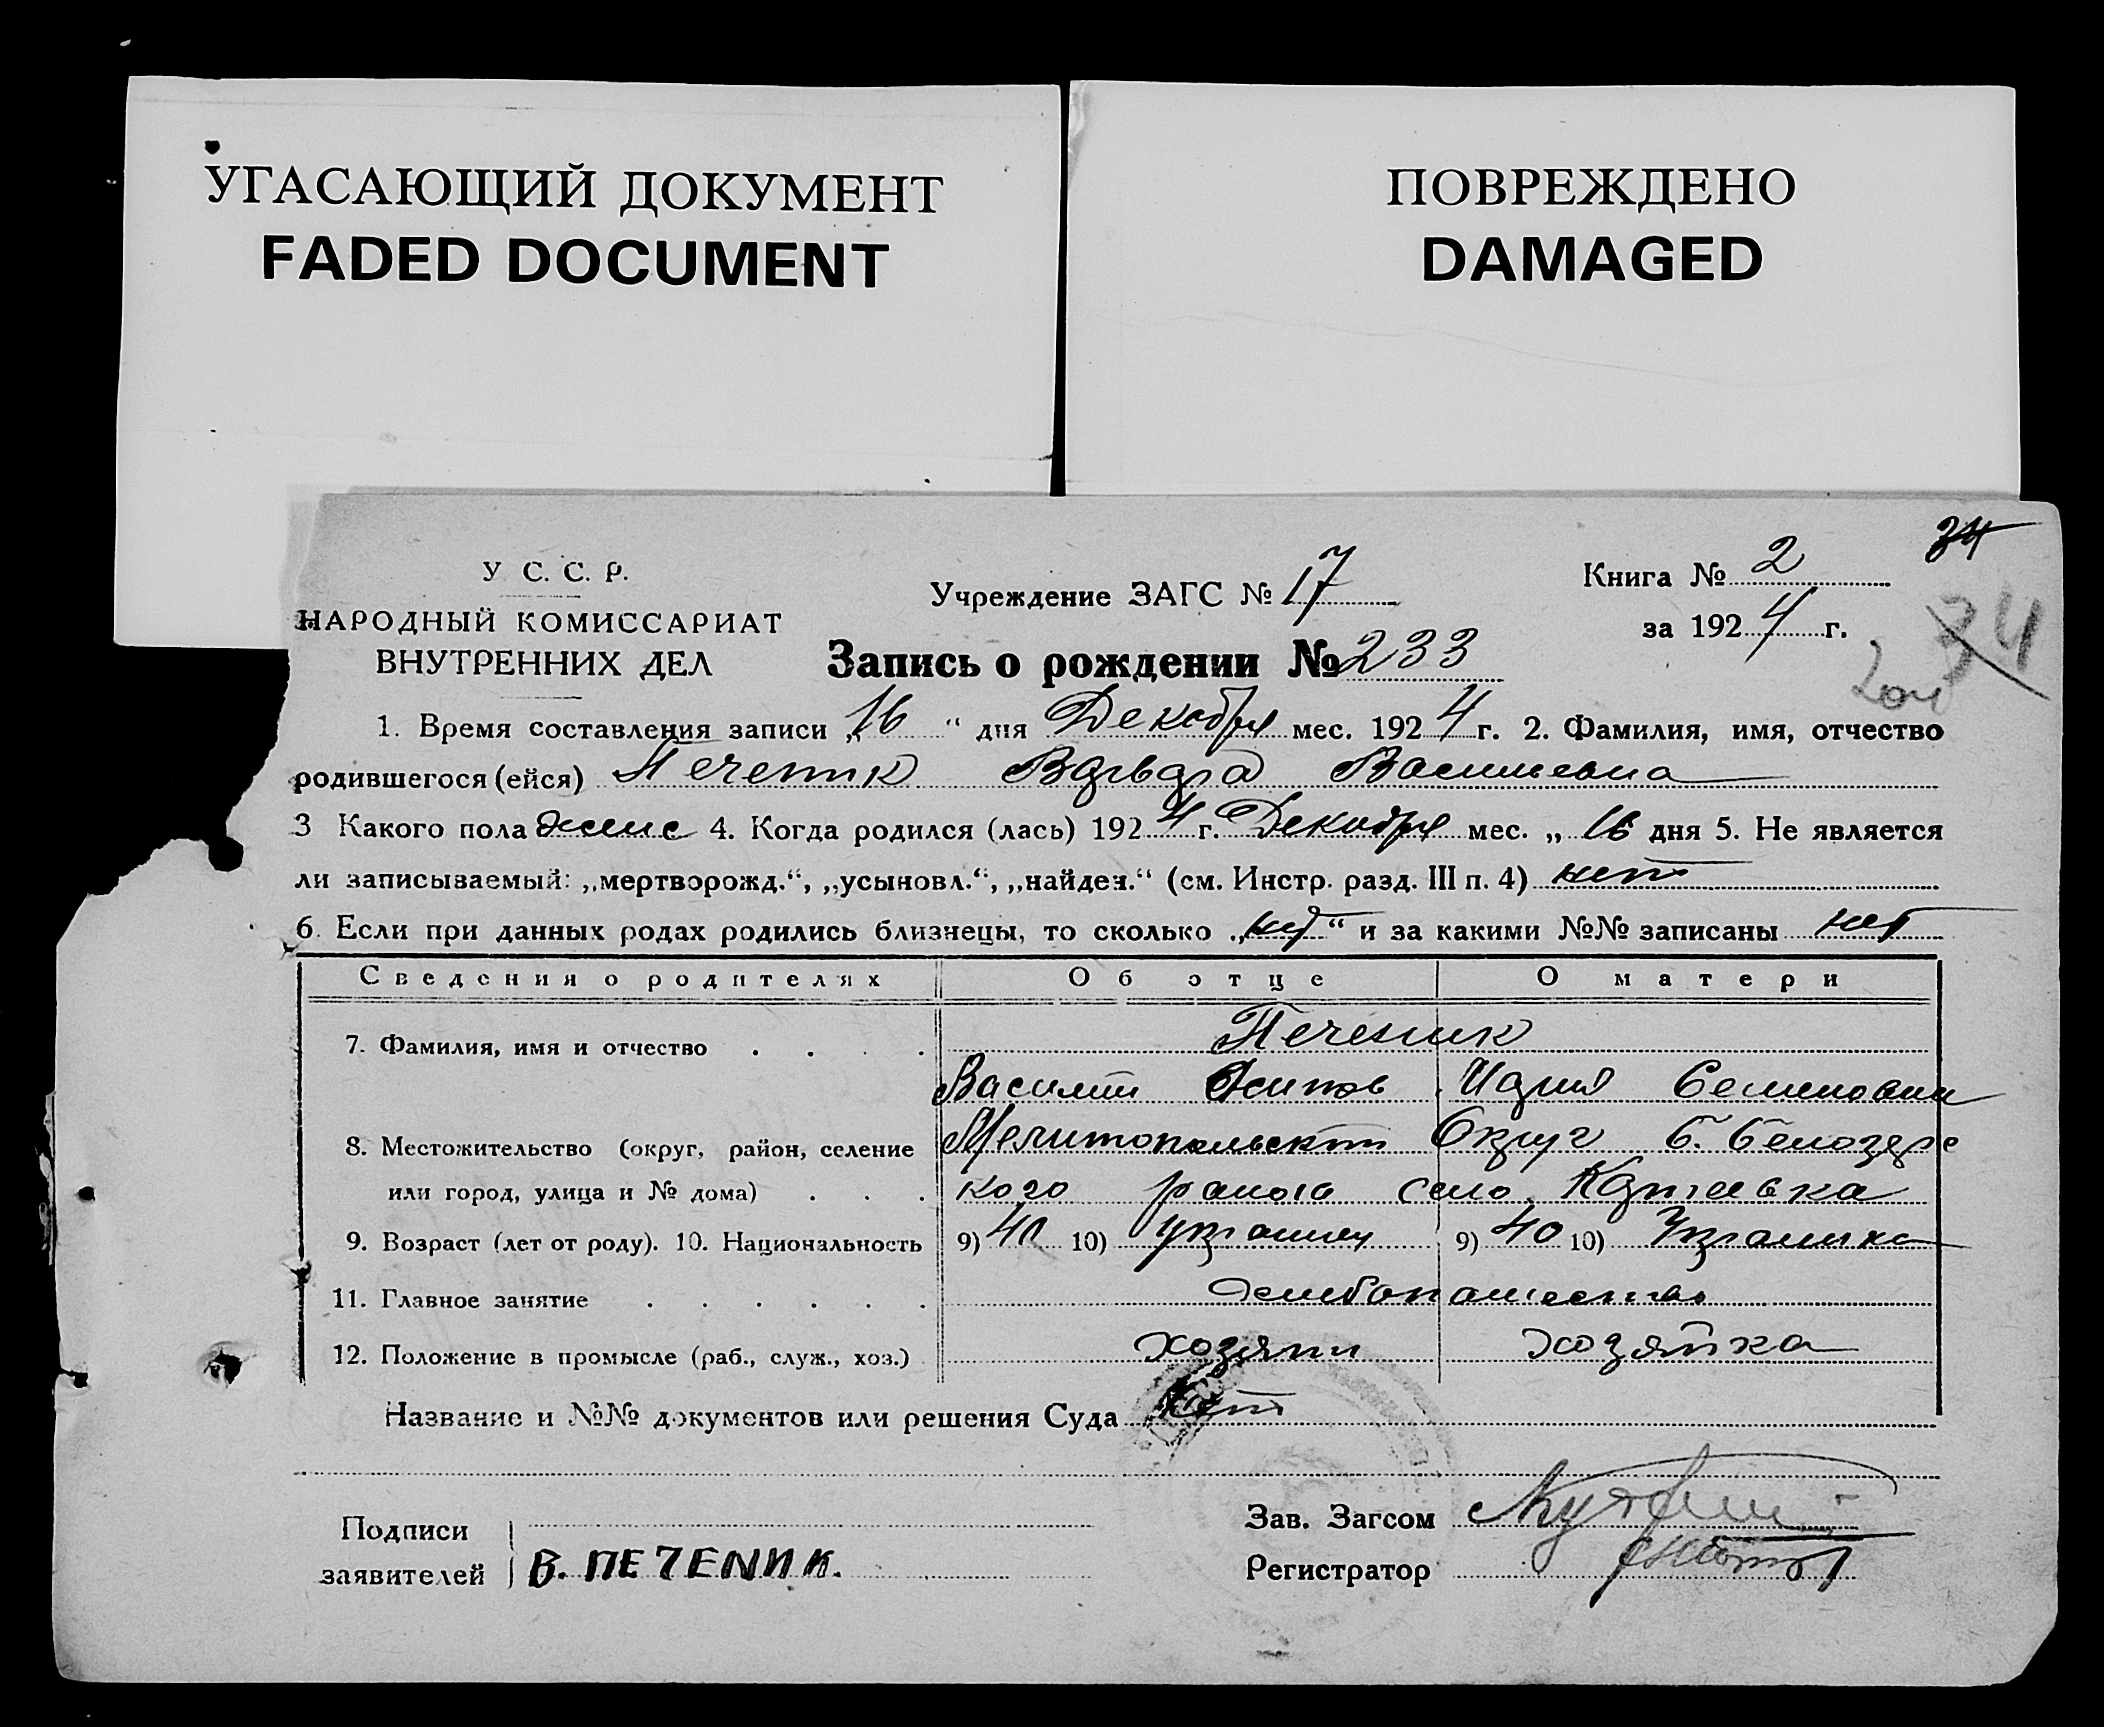 УГАСАЮЩИЙ ДОКУМЕНТ
FADED DOCUMENT
ПОВРЕЖДЕНО
DAMAGED
34
У. С. С. Р.
НАРОДНЫЙ КОМИССАРИАТ
ВНУТРЕННИХ ДЕЛ
Учреждение ЗАГС № 17
Книга № 2
за 1924 г.
34
204
Запись о рождении № 233
1. Время составления записи „16“ дня Декабря мес. 1924 г. 2. Фамилия, имя, отчество
родившегося (ейся) Печеник Варвара Васильевна
3 Какого пола женс 4. Когда родился (лась) 1924 г. Декабря мес. „16 дня 5. Не является
ли записываемый: „мертворожд.“, „усыновл.“, „найден.“ (см. Инстр. разд. III п. 4) нет
6. Если при данных родах родились близнецы, то сколько „нет“ и за какими №№ записаны нет
Сведения о родителях Об отце О матери
7. Фамилия, имя и отчество . . . . Печеник
Василий Осипов Мария Семеновна
8. Местожительство (округ, район, селение Мелитопольский Округ Б. Белозерс
или город, улица и № дома) . . . кого района село
9. Возраст (лет от роду). 10. Национальность 9) 41 10) украинец 9) 40 10) Украинка
11. Главное занятие . . . . . . Хлебопашество
12. Положение в промысле (раб., служ., хоз.) хозяин хозяйка
Название и №№ документов или решения Суда Нет
Подписи
заявителей В. ПЕЧЕNИК.
Зав. Загсом
Регистратор